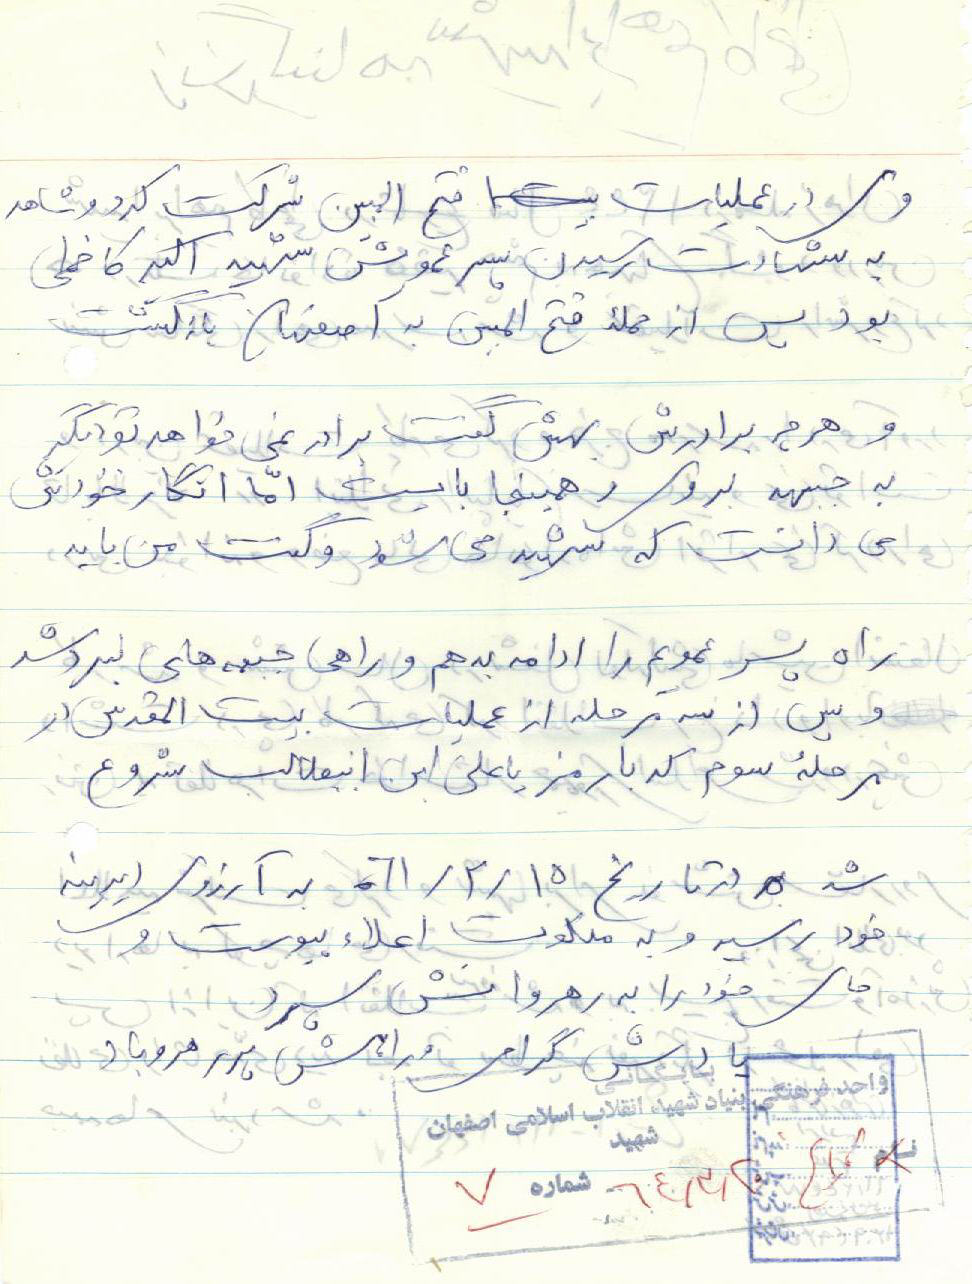 وی در عملیات فتح المبین شرکت کرد و شاهد
به شهادت رسیدن پسر عمویش شهید اکبر کاظمی
بود پس از حملهٔ فتح المبین به اصفهان بازگشت
و هرچه برادرش بهش گفت برادر نمی خواهد تو دیگر
به جبهه بروی و همینجا بایست امّا انگار خودش
می دانست که شهید می شود و گفت من باید
راه پسر عمویم را ادامه بدهم و راهی جبهه های نبرد شد
و پس از سه مرحله از عملیات بیت المقدس در
مرحلهٔ سوم که با رمز یا علی ابن ابیطالب شروع
شد در تاریخ ۶۱/۲/۱۵ به آرزوی دیرینه
خود رسید و به ملکوت اعلاء پیوست و
جای خود را به رهروانش سپرد
یادش گرامی و راهش پر رهرو باد
بایگانی
واحد فرهنگی بنیاد شهید انقلاب اسلامی اصفهان
شهید
شماره ۷